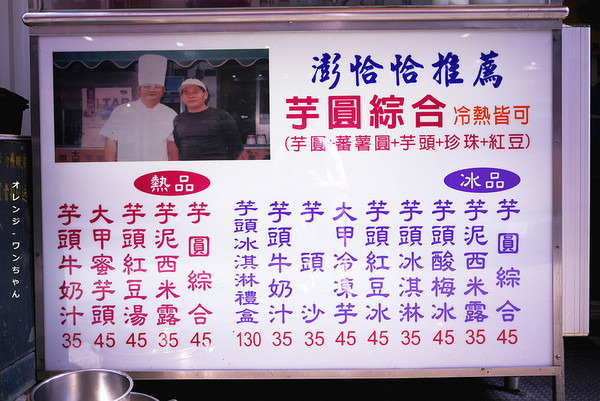 澎恰恰推薦
芋圓綜合 冷熱皆可
(芋圓+蕃薯圓+芋頭+珍珠+紅豆)
熱品
芋圓綜合 45
芋泥西米露 35
芋頭紅豆湯 45
大甲蜜芋頭 45
芋頭牛奶汁 35
冰品
芋圓綜合 45
芋泥西米露 35
芋頭酸梅冰 45
芋頭冰淇淋 45
芋頭紅豆冰 45
大甲冷凍芋 45
芋頭沙 35
芋頭牛奶汁 35
芋頭冰淇淋禮盒 130
オレンジ・ワンちゃん